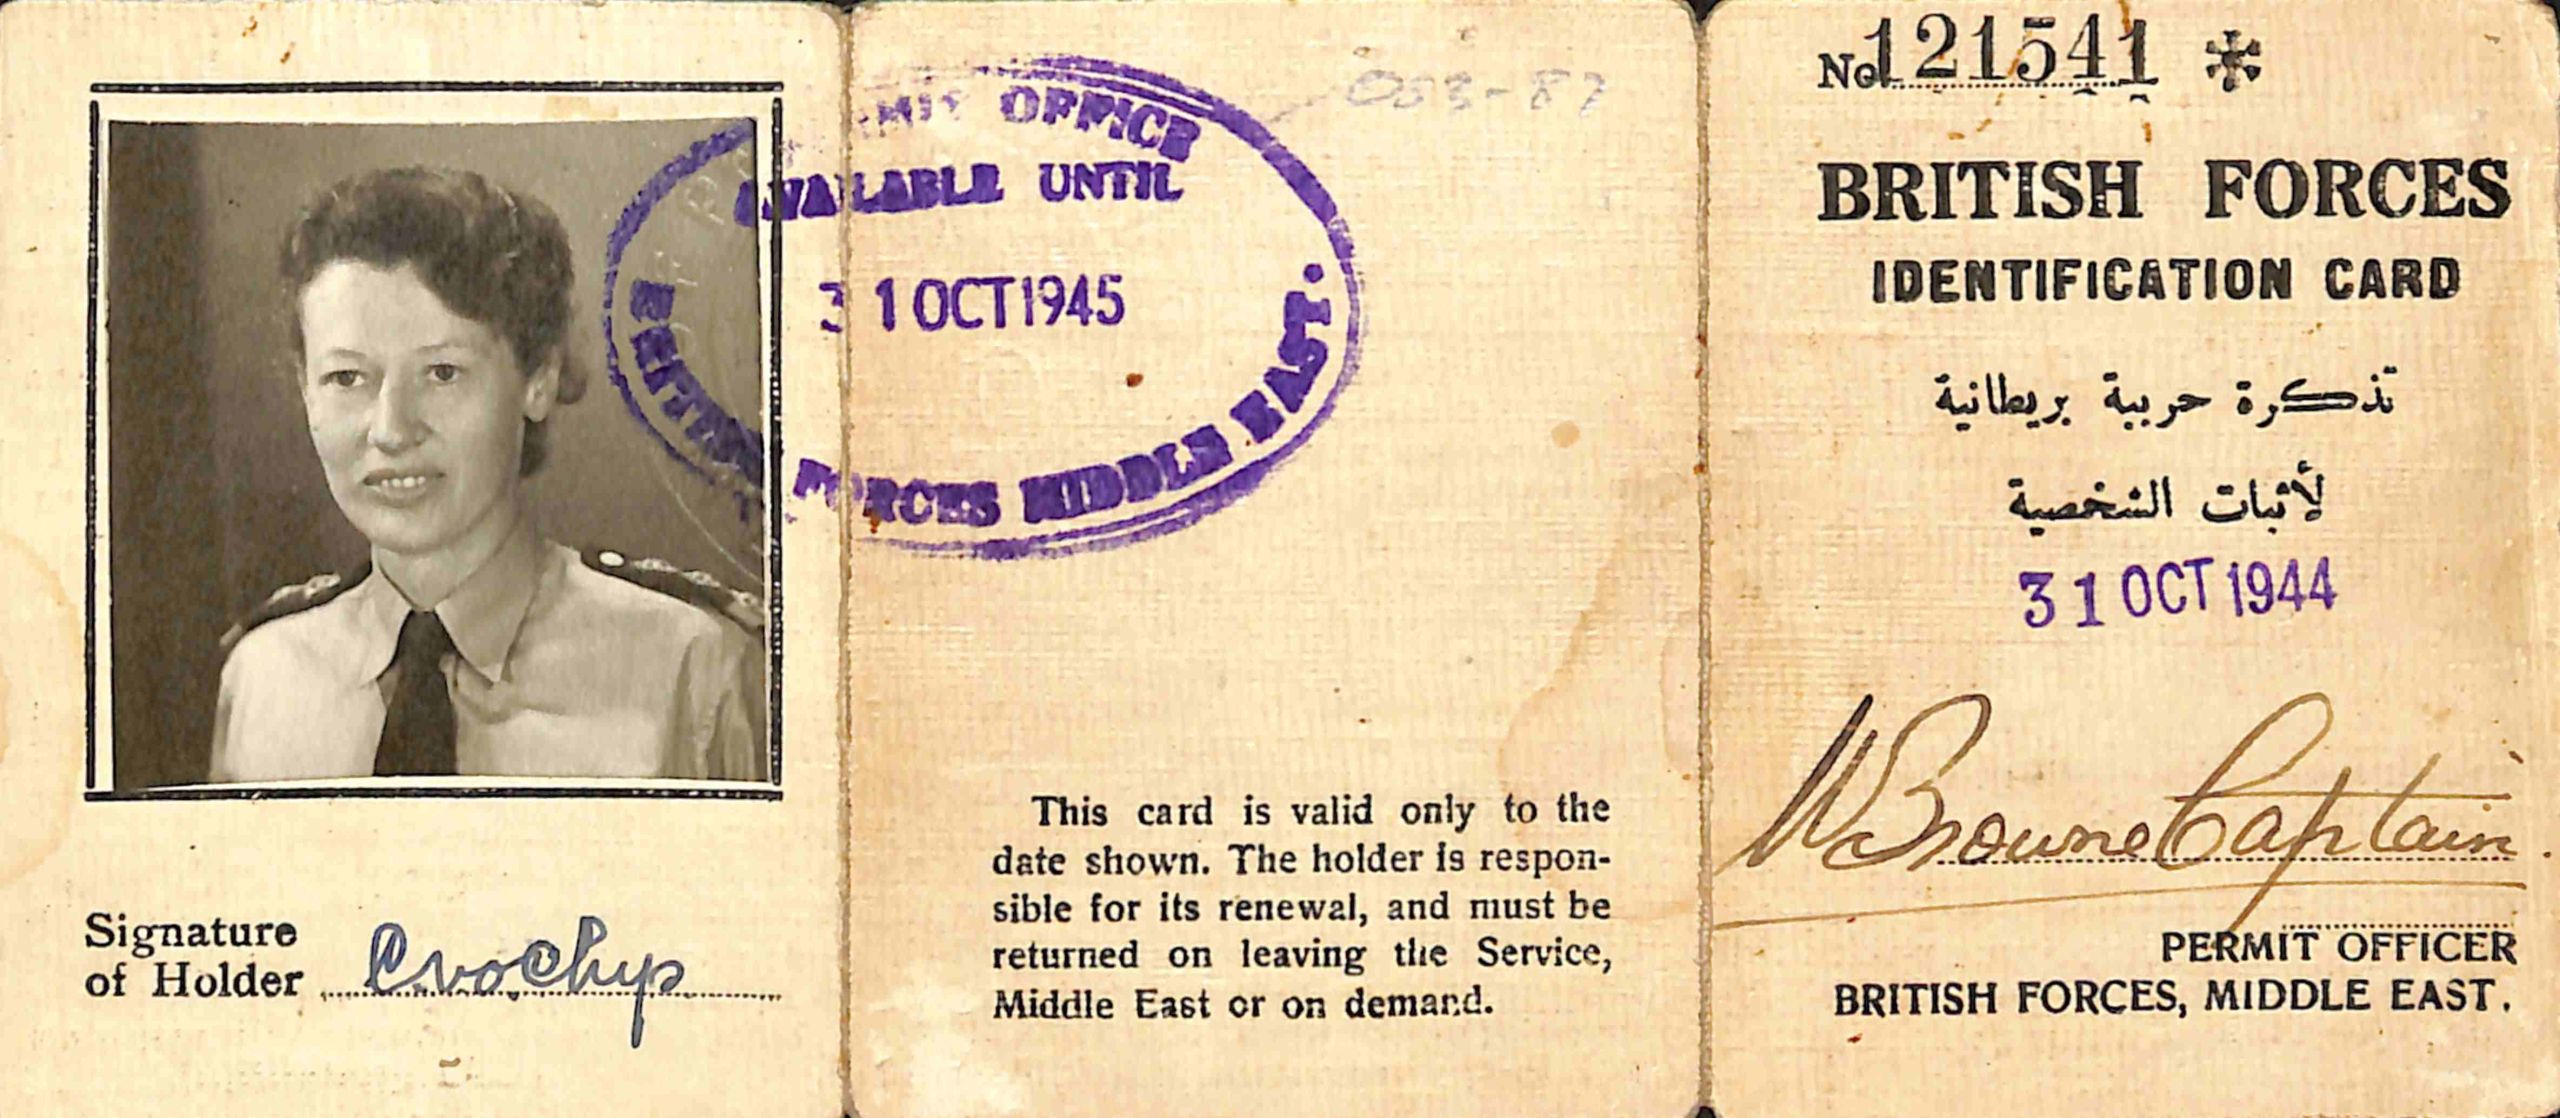 OFFICE
AVAILABLE UNTIL
31 OCT 1945
BRITISH FORCES MIDDLE EAST.
Signature
of Holder
This card is valid only to the
date shown. The holder is respon-
sible for its renewal, and must be
returned on leaving the Service,
Middle East or on demand.
No 121541 *
BRITISH FORCES
IDENTIFICATION CARD
تذكرة حربية بريطانية
لأثبات الشخصية
31 OCT 1944
W Browne Captain
PERMIT OFFICER
BRITISH FORCES, MIDDLE EAST.